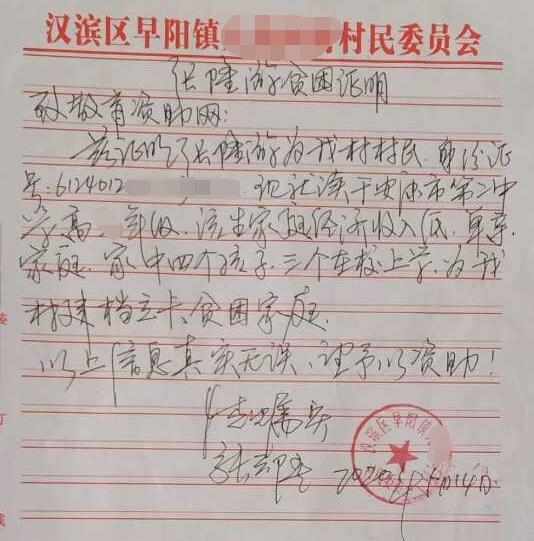 汉滨区早阳镇 村民委员会
张隆游贫困证明
致教育资助网:
兹证明张隆游为我村村民.身份证
号:6124012 现就读于安康市第二中
学高 年级.该生家庭经济收入低.单亲
家庭.家中四个孩子.三个在校上学.为我
村建档立卡贫困家庭.
以上信息真实无误、望予以资助!
情况属实
2020年 月14日
汉滨区早阳镇